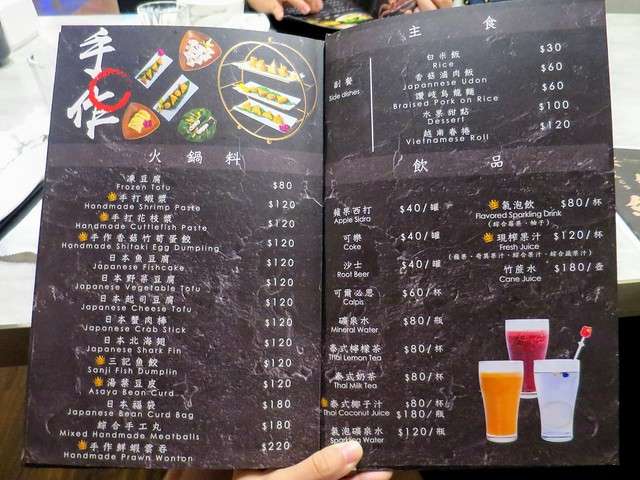 手作
火鍋料
凍豆腐 $80
Frozen Tofu
手打蝦漿 $120
Handmade Shrimp Paste
手打花枝漿 $120
Handmade Cuttlefish Paste
手作香菇竹荀蛋餃 $120
Handmade Shitaki Egg Dumpling
日本魚豆腐 $120
Japanese Fishcake
日本野菜豆腐 $120
Japanese Vegetable Tofu
日本起司豆腐 $120
Japanese Cheese Tofu
日本蟹肉棒 $120
Japanese Crab Stick
日本北海翅 $120
Japanese Shark Fin
三記魚餃 $120
Sanji Fish Dumplin
湯葉豆皮 $120
Asaya Bean Curd
日本福袋 $180
Japanese Bean Curd Bag
綜合手工丸 $180
Mixed Handmade Meatballs
手作鮮蝦雲吞 $220
Handmade Prawn Wonton
主食
副餐
Side dishes
白米飯 $30
Rice
香菇滷肉飯 $60
Japannese Udon
讚岐烏龍麵 $60
Braised Pork on Rice
水果甜點 $100
Dessert
越南春捲 $120
Vietnamese Roll
飲品
蘋果西打 $40/罐
Apple Sidra
可樂 $40/罐
Coke
沙士 $40/罐
Root Beer
可爾必思 $60/杯
Calpis
礦泉水 $80/瓶
Mineral Water
泰式檸檬茶 $80/杯
Thai Lemon Tea
泰式奶茶 $80/杯
Thai Milk Tea
泰式椰子汁 $80/杯
Thai Coconut Juice $180/瓶
氣泡礦泉水 $120/瓶
Sparkling Water
氣泡飲 $80/杯
Flavored Sparkling Drink
(綜合莓果、柚子)
現榨果汁 $120/杯
Fresh Juice
(蘋果、奇異果汁、綜合果汁、綜合蔬果汁)
竹蔗水 $180/壺
Cane Juice